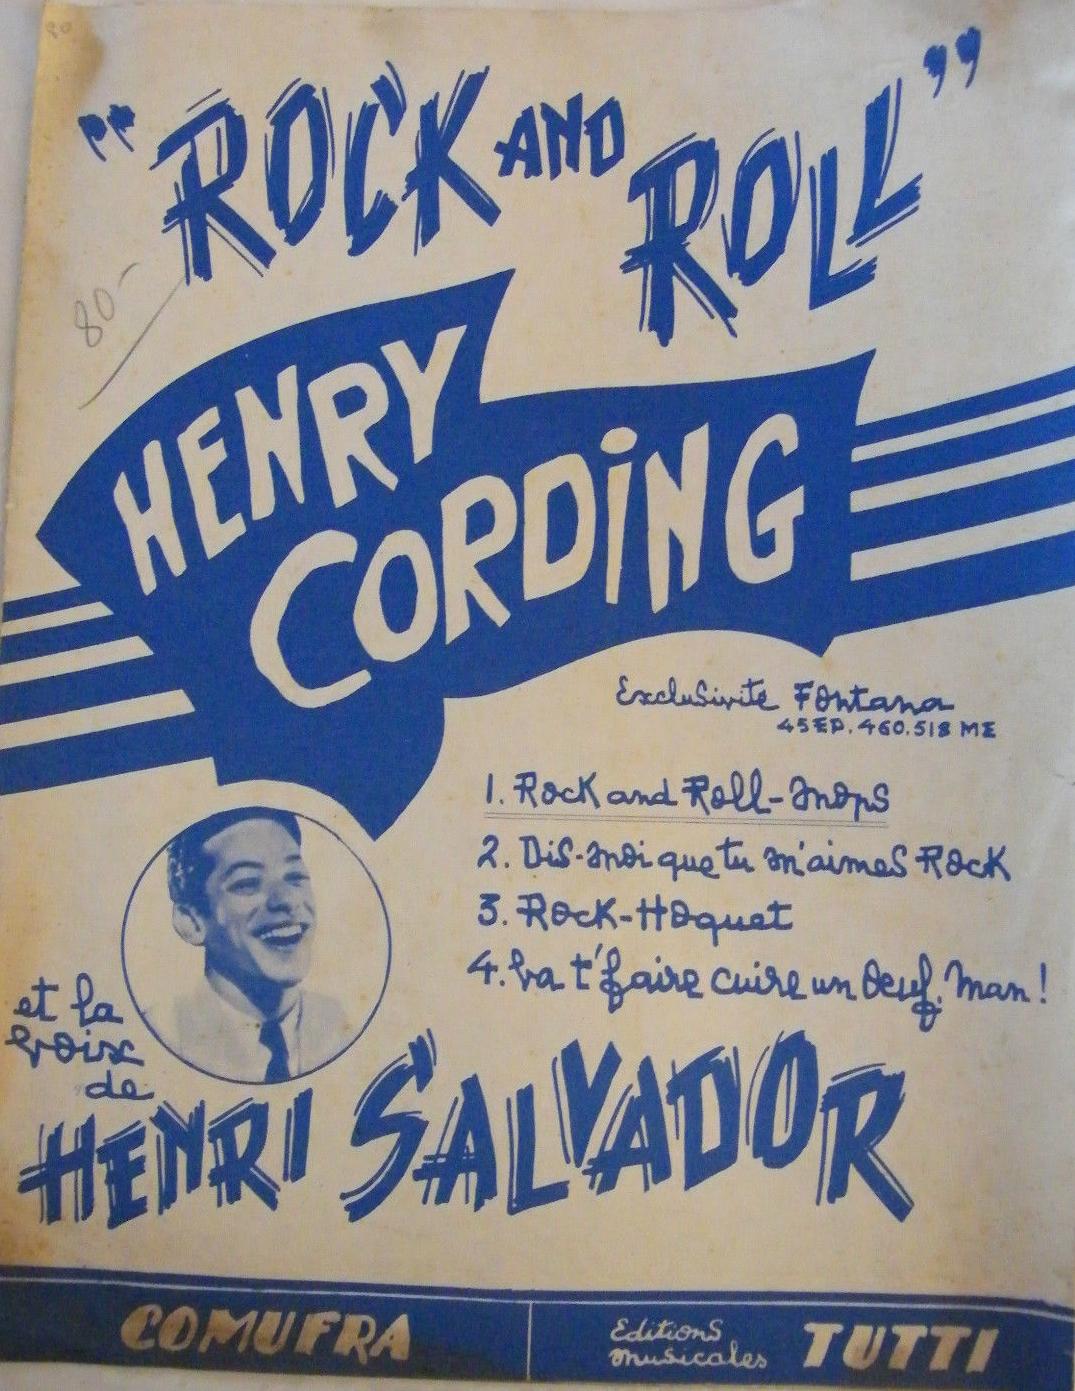 80
"ROCK AND ROLL"
80-
HENRY
CORDING
Exclusivité Fontana
45 EP. 460.518 ME
1. Rock and Roll-mops
2. Dis-moi que tu m'aimes Rock
3. Rock-Hoquet
4. Va t'faire cuire un oeuf, Man!
et la
voix
de
HENRI SALVADOR
COMUFRA
Editions
musicales
TUTTI